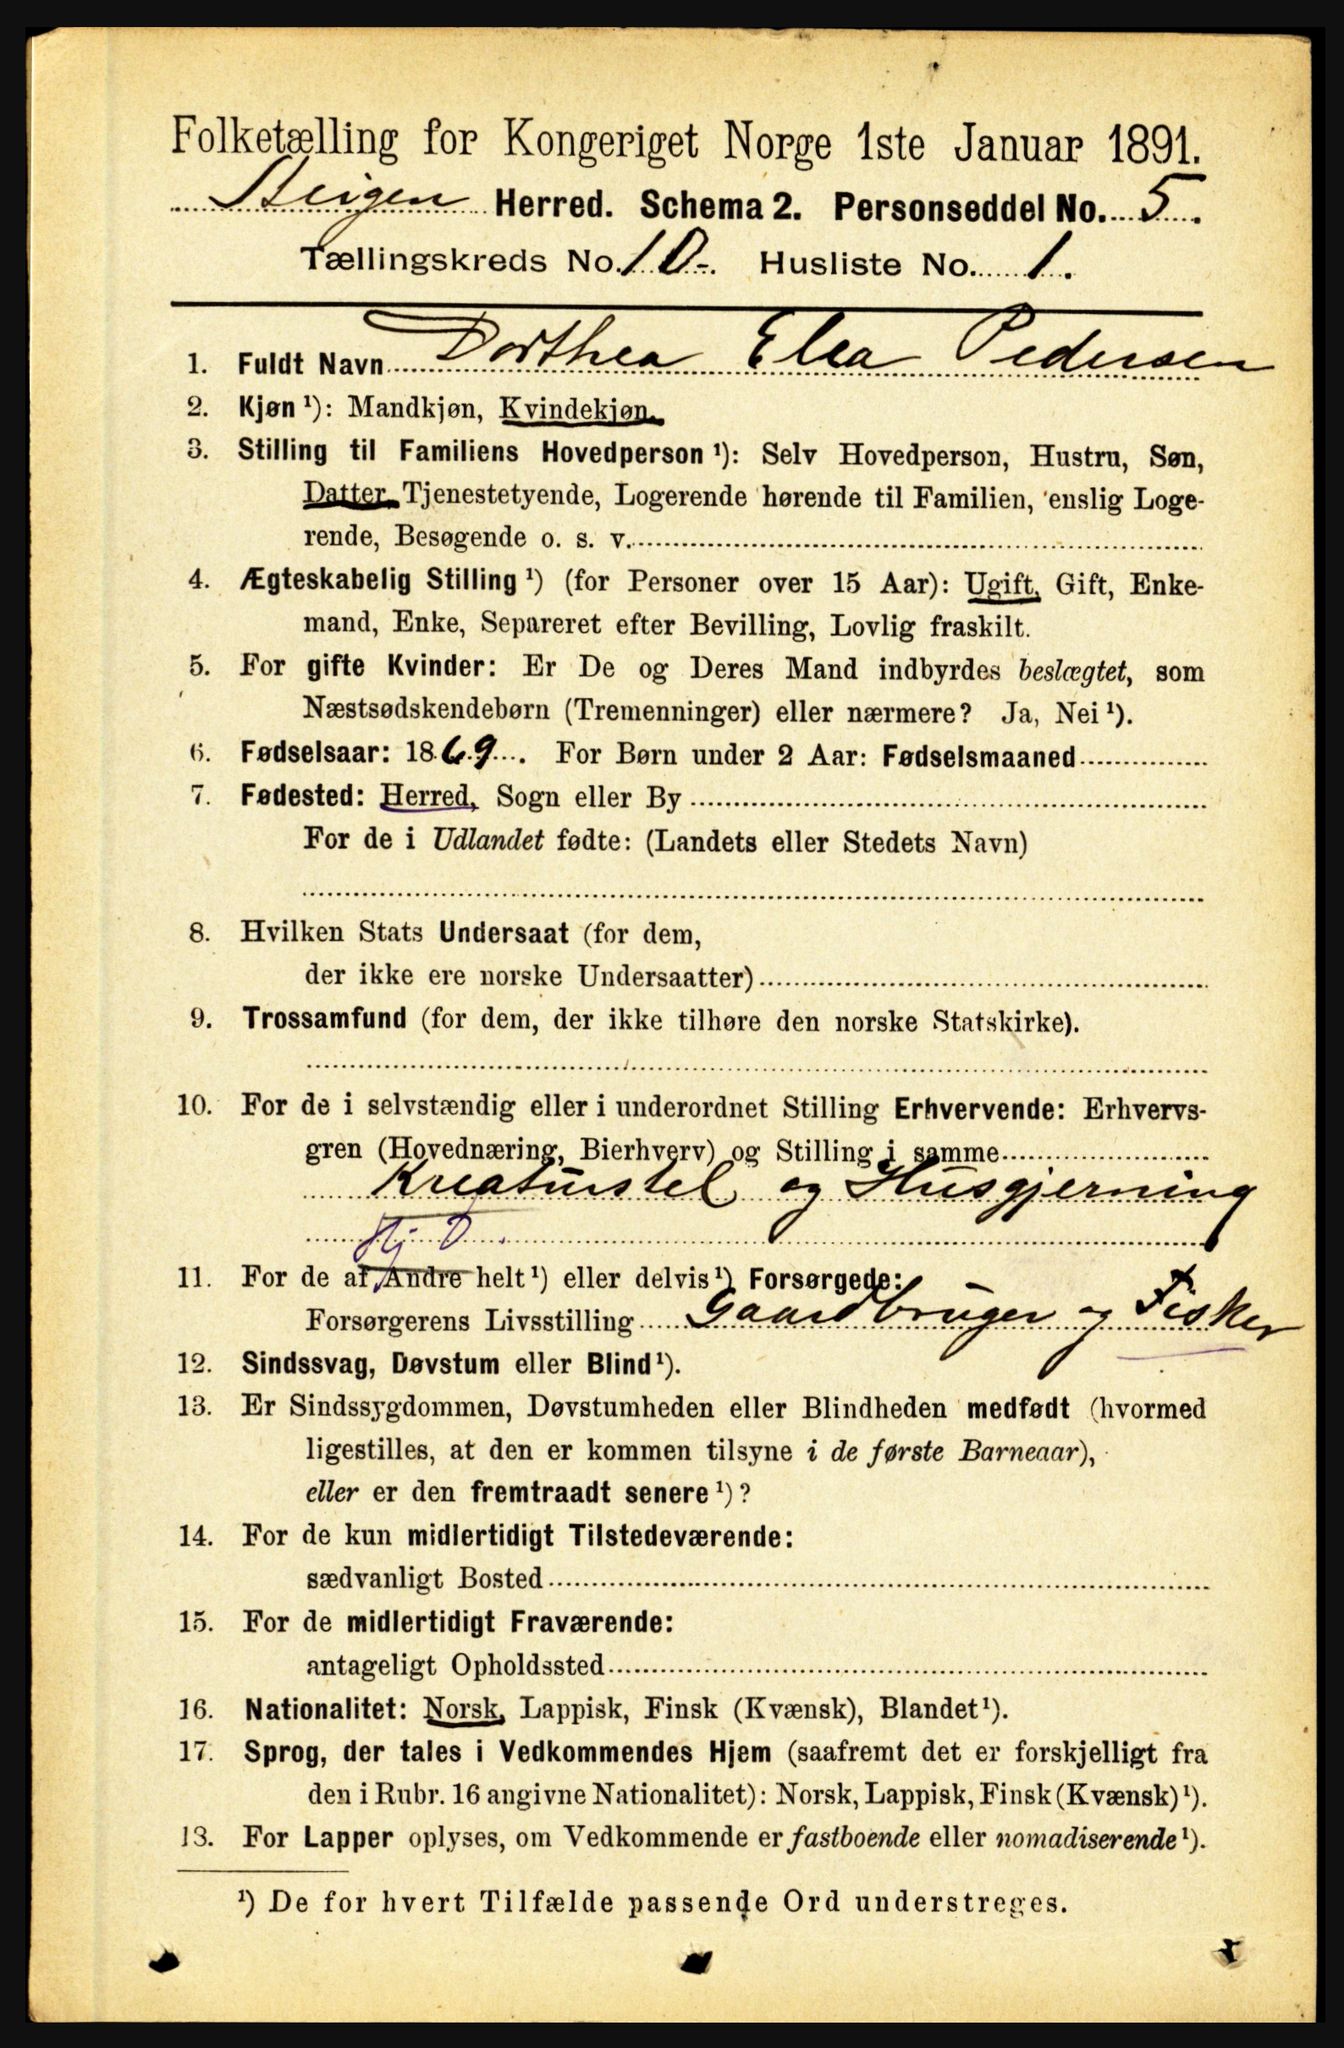 Folketælling for Kongeriget Norge 1ste Januar 1891.
Steigen Herred. Schema 2. Personseddel No. 5.
Tællingskreds No. 10. Husliste No. 1.
1. Fuldt Navn Dorthea Elea Pedersen
2. Kjøn ¹): Mandkjøn, Kvindekjøn.
3. Stilling til Familiens Hovedperson ¹): Selv Hovedperson, Hustru, Søn,
Datter, Tjenestetyende, Logerende hørende til Familien, enslig Loge-
rende, Besøgende o. s. v.
4. Ægteskabelig Stilling ¹) (for Personer over 15 Aar): Ugift, Gift, Enke-
mand, Enke, Separeret efter Bevilling, Lovlig fraskilt.
5. For gifte Kvinder: Er De og Deres Mand indbyrdes beslægtet, som
Næstsødskendebørn (Tremenninger) eller nærmere? Ja, Nei ¹).
6. Fødselsaar: 1869. For Børn under 2 Aar: Fødselsmaaned
7. Fødested: Herred, Sogn eller By
For de i Udlandet fødte: (Landets eller Stedets Navn)
8. Hvilken Stats Undersaat (for dem,
der ikke ere norske Undersaatter)
9. Trossamfund (for dem, der ikke tilhøre den norske Statskirke).
10. For de i selvstændig eller i underordnet Stilling Erhvervende: Erhvervs-
gren (Hovednæring, Bierhverv) og Stilling i samme
Kreaturstel og Husgjerning
Hj. D.
11. For de af Andre helt ¹) eller delvis ¹) Forsørgede:
Forsørgerens Livsstilling Gaardbruger og Fisker
12. Sindssvag, Døvstum eller Blind ¹).
13. Er Sindssygdommen, Døvstumheden eller Blindheden medfødt (hvormed
ligestilles, at den er kommen tilsyne i de første Barneaar),
eller er den fremtraadt senere ¹)?
14. For de kun midlertidigt Tilstedeværende:
sædvanligt Bosted
15. For de midlertidigt Fraværende:
antageligt Opholdssted
16. Nationalitet: Norsk, Lappisk, Finsk (Kvænsk), Blandet ¹).
17. Sprog, der tales i Vedkommendes Hjem (saafremt det er forskjelligt fra
den i Rubr. 16 angivne Nationalitet): Norsk, Lappisk, Finsk (Kvænsk) ¹).
13. For Lapper oplyses, om Vedkommende er fastboende eller nomadiserende ¹).
¹) De for hvert Tilfælde passende Ord understreges.